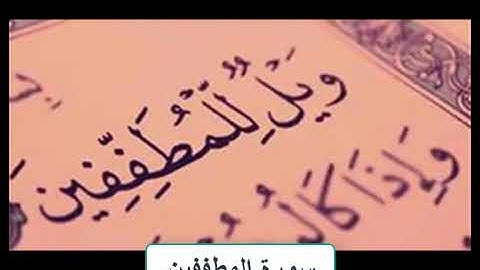 وَيْلٌ لِّلْمُطَفِّفِينَ
وَإِذَا
سورة المطففين